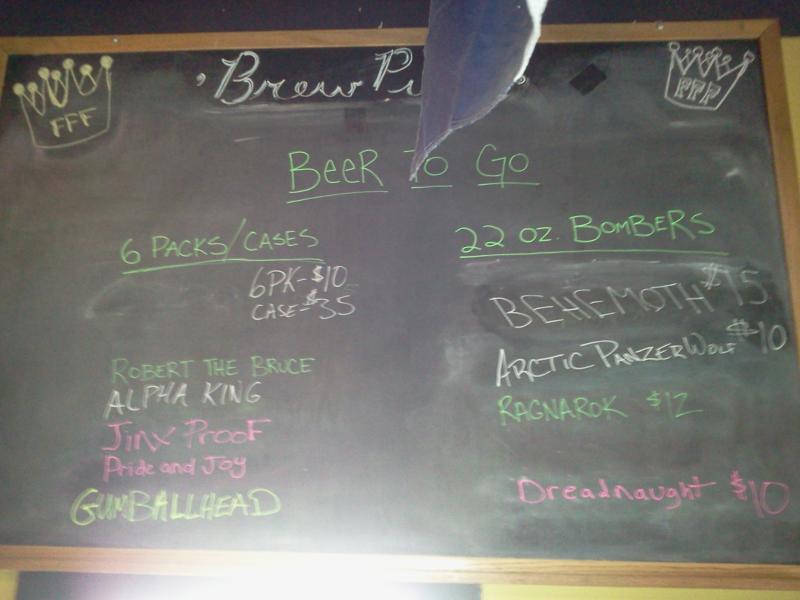 FFF
Brew
FFF
BEER TO GO
6 PACKS/CASES
6PK-$10
CASE-$35
ROBERT THE BRUCE
ALPHA KING
Jinx Proof
Pride and Joy
GUMBALLHEAD
22 OZ. BOMBERS
BEHEMOTH $15
ARCTIC PANZER WOLF $10
RAGNAROK $12
Dreadnaught $10